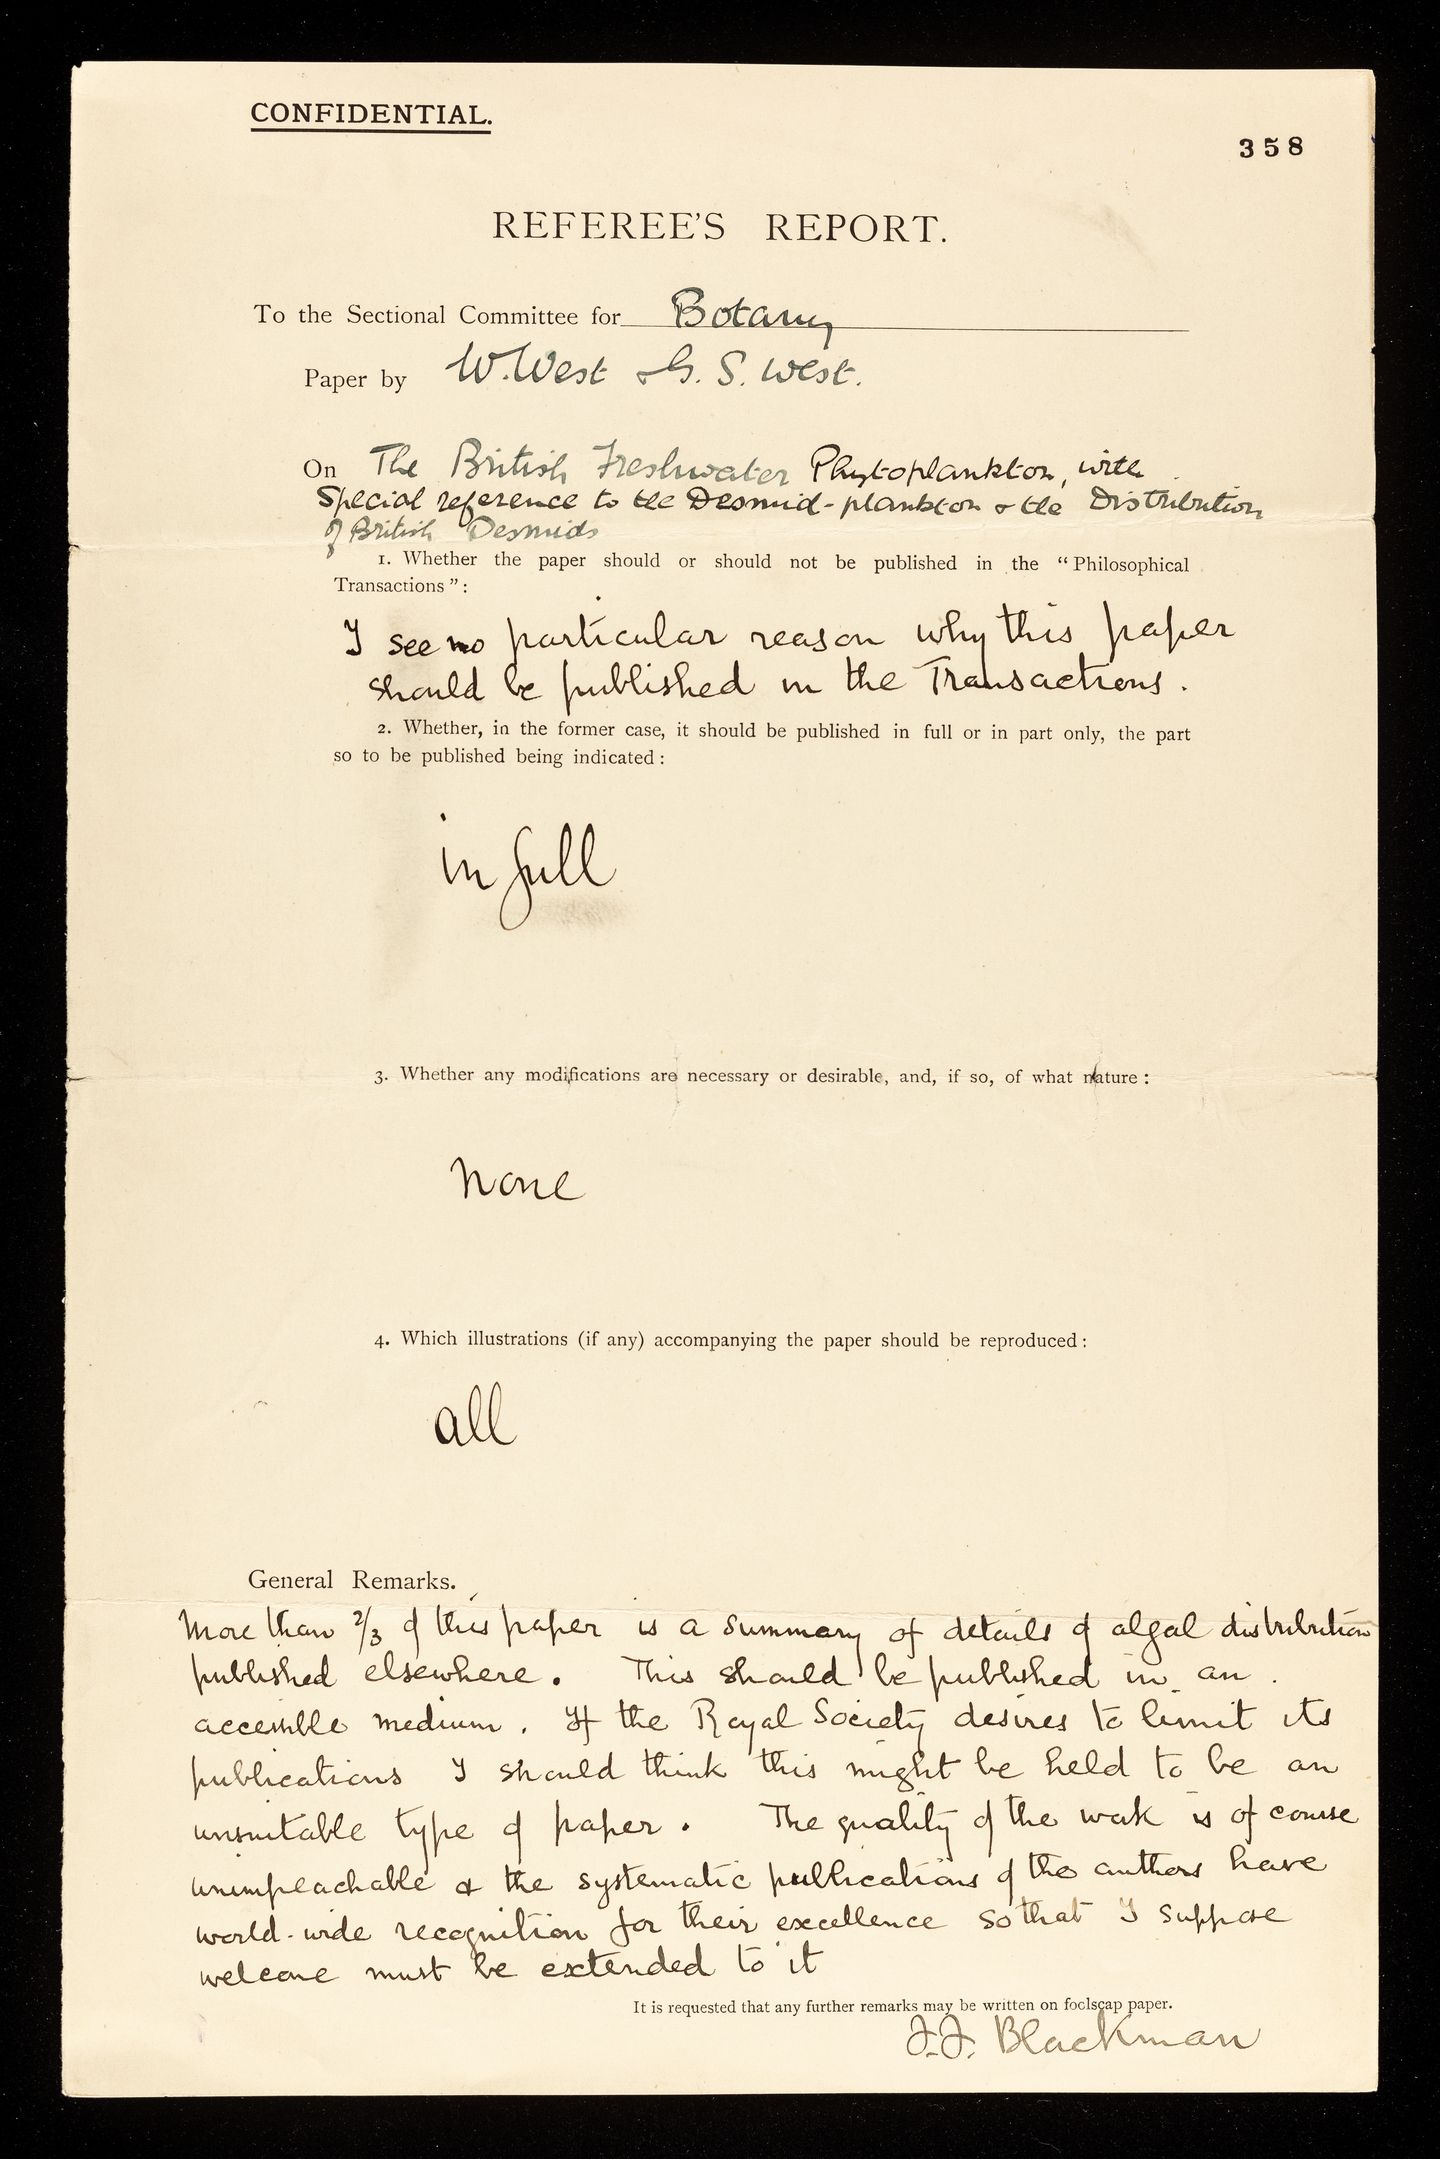 CONFIDENTIAL.
358
REFEREE'S REPORT.
To the Sectional Committee for Botany
Paper by W. West & G. S. West.
On The British Freshwater Phytoplankton, with
Special reference to the Desmid-plankton & the Distribution
of British Desmids
1. Whether the paper should or should not be published in the "Philosophical
Transactions":
I see no particular reason why this paper
should be published in the Transactions.
2. Whether, in the former case, it should be published in full or in part only, the part
so to be published being indicated:
in full
3. Whether any modifications are necessary or desirable, and, if so, of what nature:
none
4. Which illustrations (if any) accompanying the paper should be reproduced:
all
General Remarks.
More than 2/3 of this paper is a summary of details of algal distribution
published elsewhere. This should be published in an
accessible medium. If the Royal Society desires to limit its
publications I should think this might be held to be an
unsuitable type of paper. The quality of the work is of course
unimpeachable & the systematic publications of the authors have
world-wide recognition for their excellence so that I suppose
welcome must be extended to it
It is requested that any further remarks may be written on foolscap paper.
F.F. Blackman